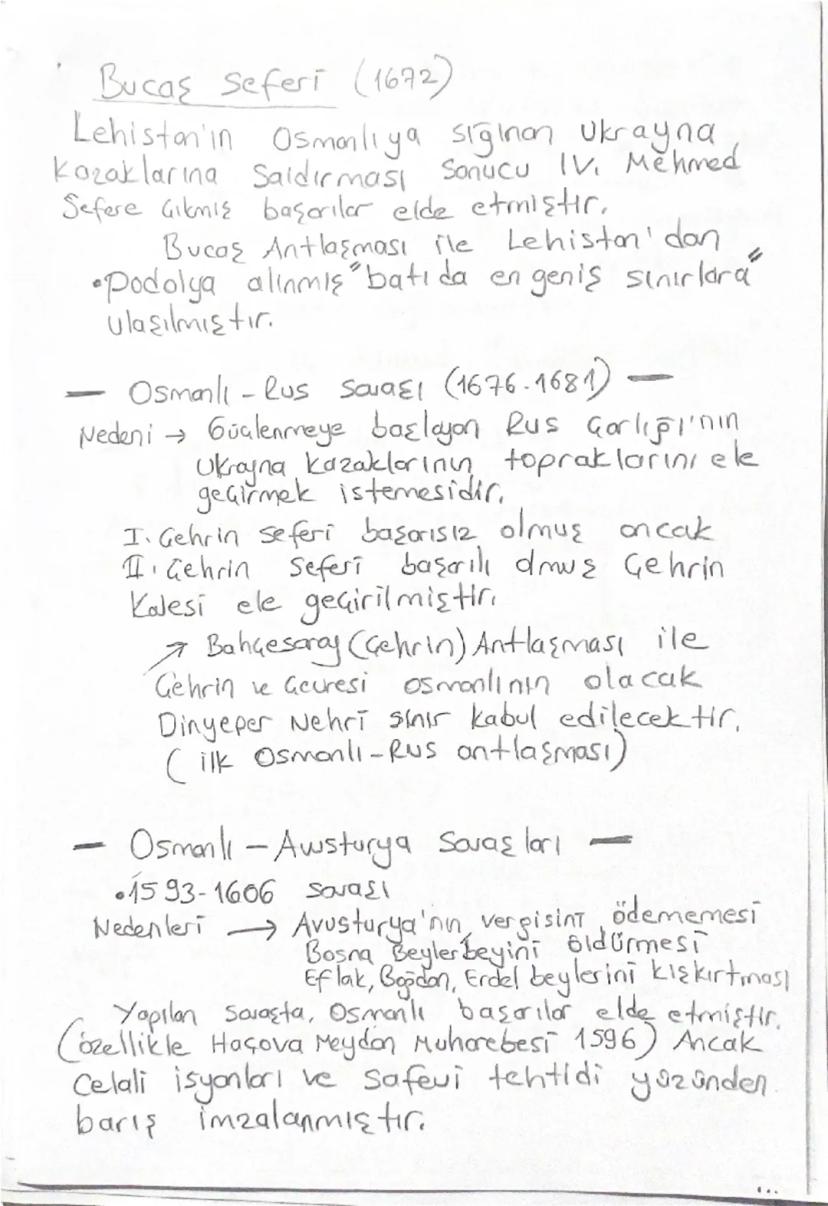 Bucaş Seferi (1672)
Lehistan'ın Osmanlıya sığınan Ukrayna
Kazaklarına Saldırması Sonucu IV. Mehmed
Sefere Çıkmış başarılar elde etmiştir.
Bucaş Antlaşması ile Lehistan'dan
•Podolya alınmış "batıda en geniş sınırlara"
ulaşılmıştır.
— Osmanlı - Rus Savaşı (1676-1681) —
Nedeni → Güçlenmeye başlayan Rus Çarlığı'nın
Ukrayna Kazaklarının topraklarını ele
geçirmek istemesidir.
I. Çehrin Seferi başarısız olmuş ancak
II. Çehrin Seferi başarılı olmuş Çehrin
Kalesi ele geçirilmiştir.
↗ Bahçesaray (Çehrin) Antlaşması ile
Çehrin ve Çevresi osmanlının olacak
Dinyeper Nehri sınır kabul edilecektir.
(ilk Osmanlı-Rus antlaşması)
— Osmanlı - Avusturya Savaşları —
•1593-1606 savaşı
Nedenleri → Avusturya'nın vergisini ödememesi
Bosna Beylerbeyini öldürmesi
Eflak, Boğdan, Erdel beylerini kışkırtması
Yapılan savaşta, Osmanlı başarılar elde etmiştir.
(özellikle Haçova Meydan Muharebesi 1596) Ancak
Celali isyanları ve Safevi tehtidi yüzünden
barış imzalanmıştır.
...